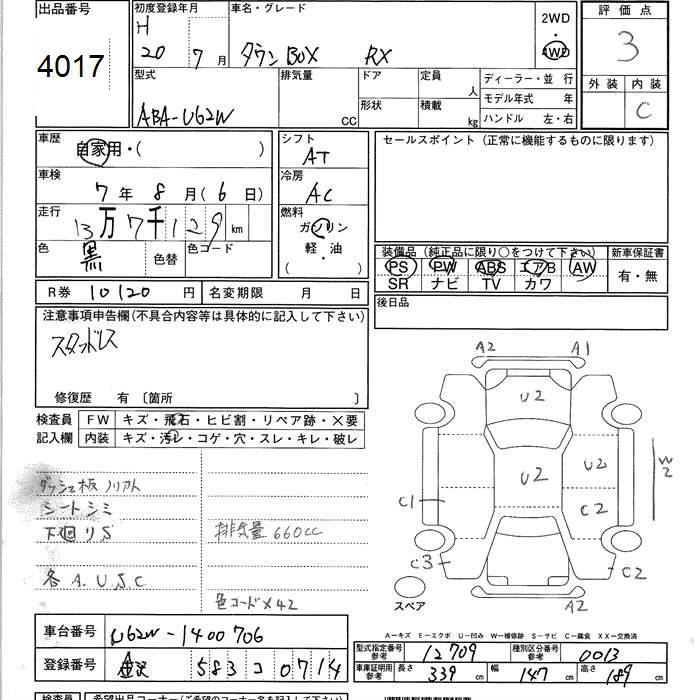 出品番号
4017
初度登録年月
H
20 7月
車名・グレード
タウンBOX RX
2WD
・
4WD
評価点
3
外装 内装
C
型式
ABA-U62W
排気量
CC
ドア
形状
定員
人
積載
kg
ディーラー・並 行
モデル年式 年
ハンドル 左・右
車歴
自家用・( )
車検
7年8月(6日)
走行
13万7千129km
色
黒
色替
色コード
シフト
AT
冷房
AC
燃料
ガソリン
軽・油
( ・ )
セールスポイント (正常に機能するものに限ります)
装備品 (純正品に限り○をつけて下さい)
PS PW ABS エアB AW
SR ナビ TV カワ
新車保証書
有・無
後日品
R券 10120円 名変期限 月 日
注意事項申告欄(不具合内容等は具体的に記入して下さい)
スタッドレス
修復歴 有 〔箇所 〕
検査員
記入欄
FW キズ・飛石・ヒビ割・リペア跡・X要
内装 キズ・汚レ・コゲ・穴・スレ・キレ・破レ
ダッシュ板ノリアト
シートシミ
下廻リS
排気量660cc
各A.U.S.C
色コードX42
A2 A1
U2
U2
U2
C2
W2
C1
C3
C2
A2
スペア
A－キズ E－エクボ U－凹み W－補修跡 S－サビ C－腐食 XX－交換済
車台番号 U62W-1400706
登録番号 金沢 583 コ 0714
型式指定番号
参考
12709
種別区分番号
参考
0013
車庫証明用
参考
長さ 339cm 幅 147cm 高さ 189cm
検査員 希望出品コーナー(ご希望のコーナー名を記入